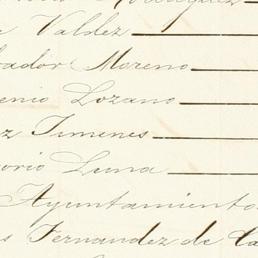 Rodriguez
a Valdez
vador Moreno
enio Lozano
z Jimenes
orio Luna
Ayuntamiento
s Fernandez de la